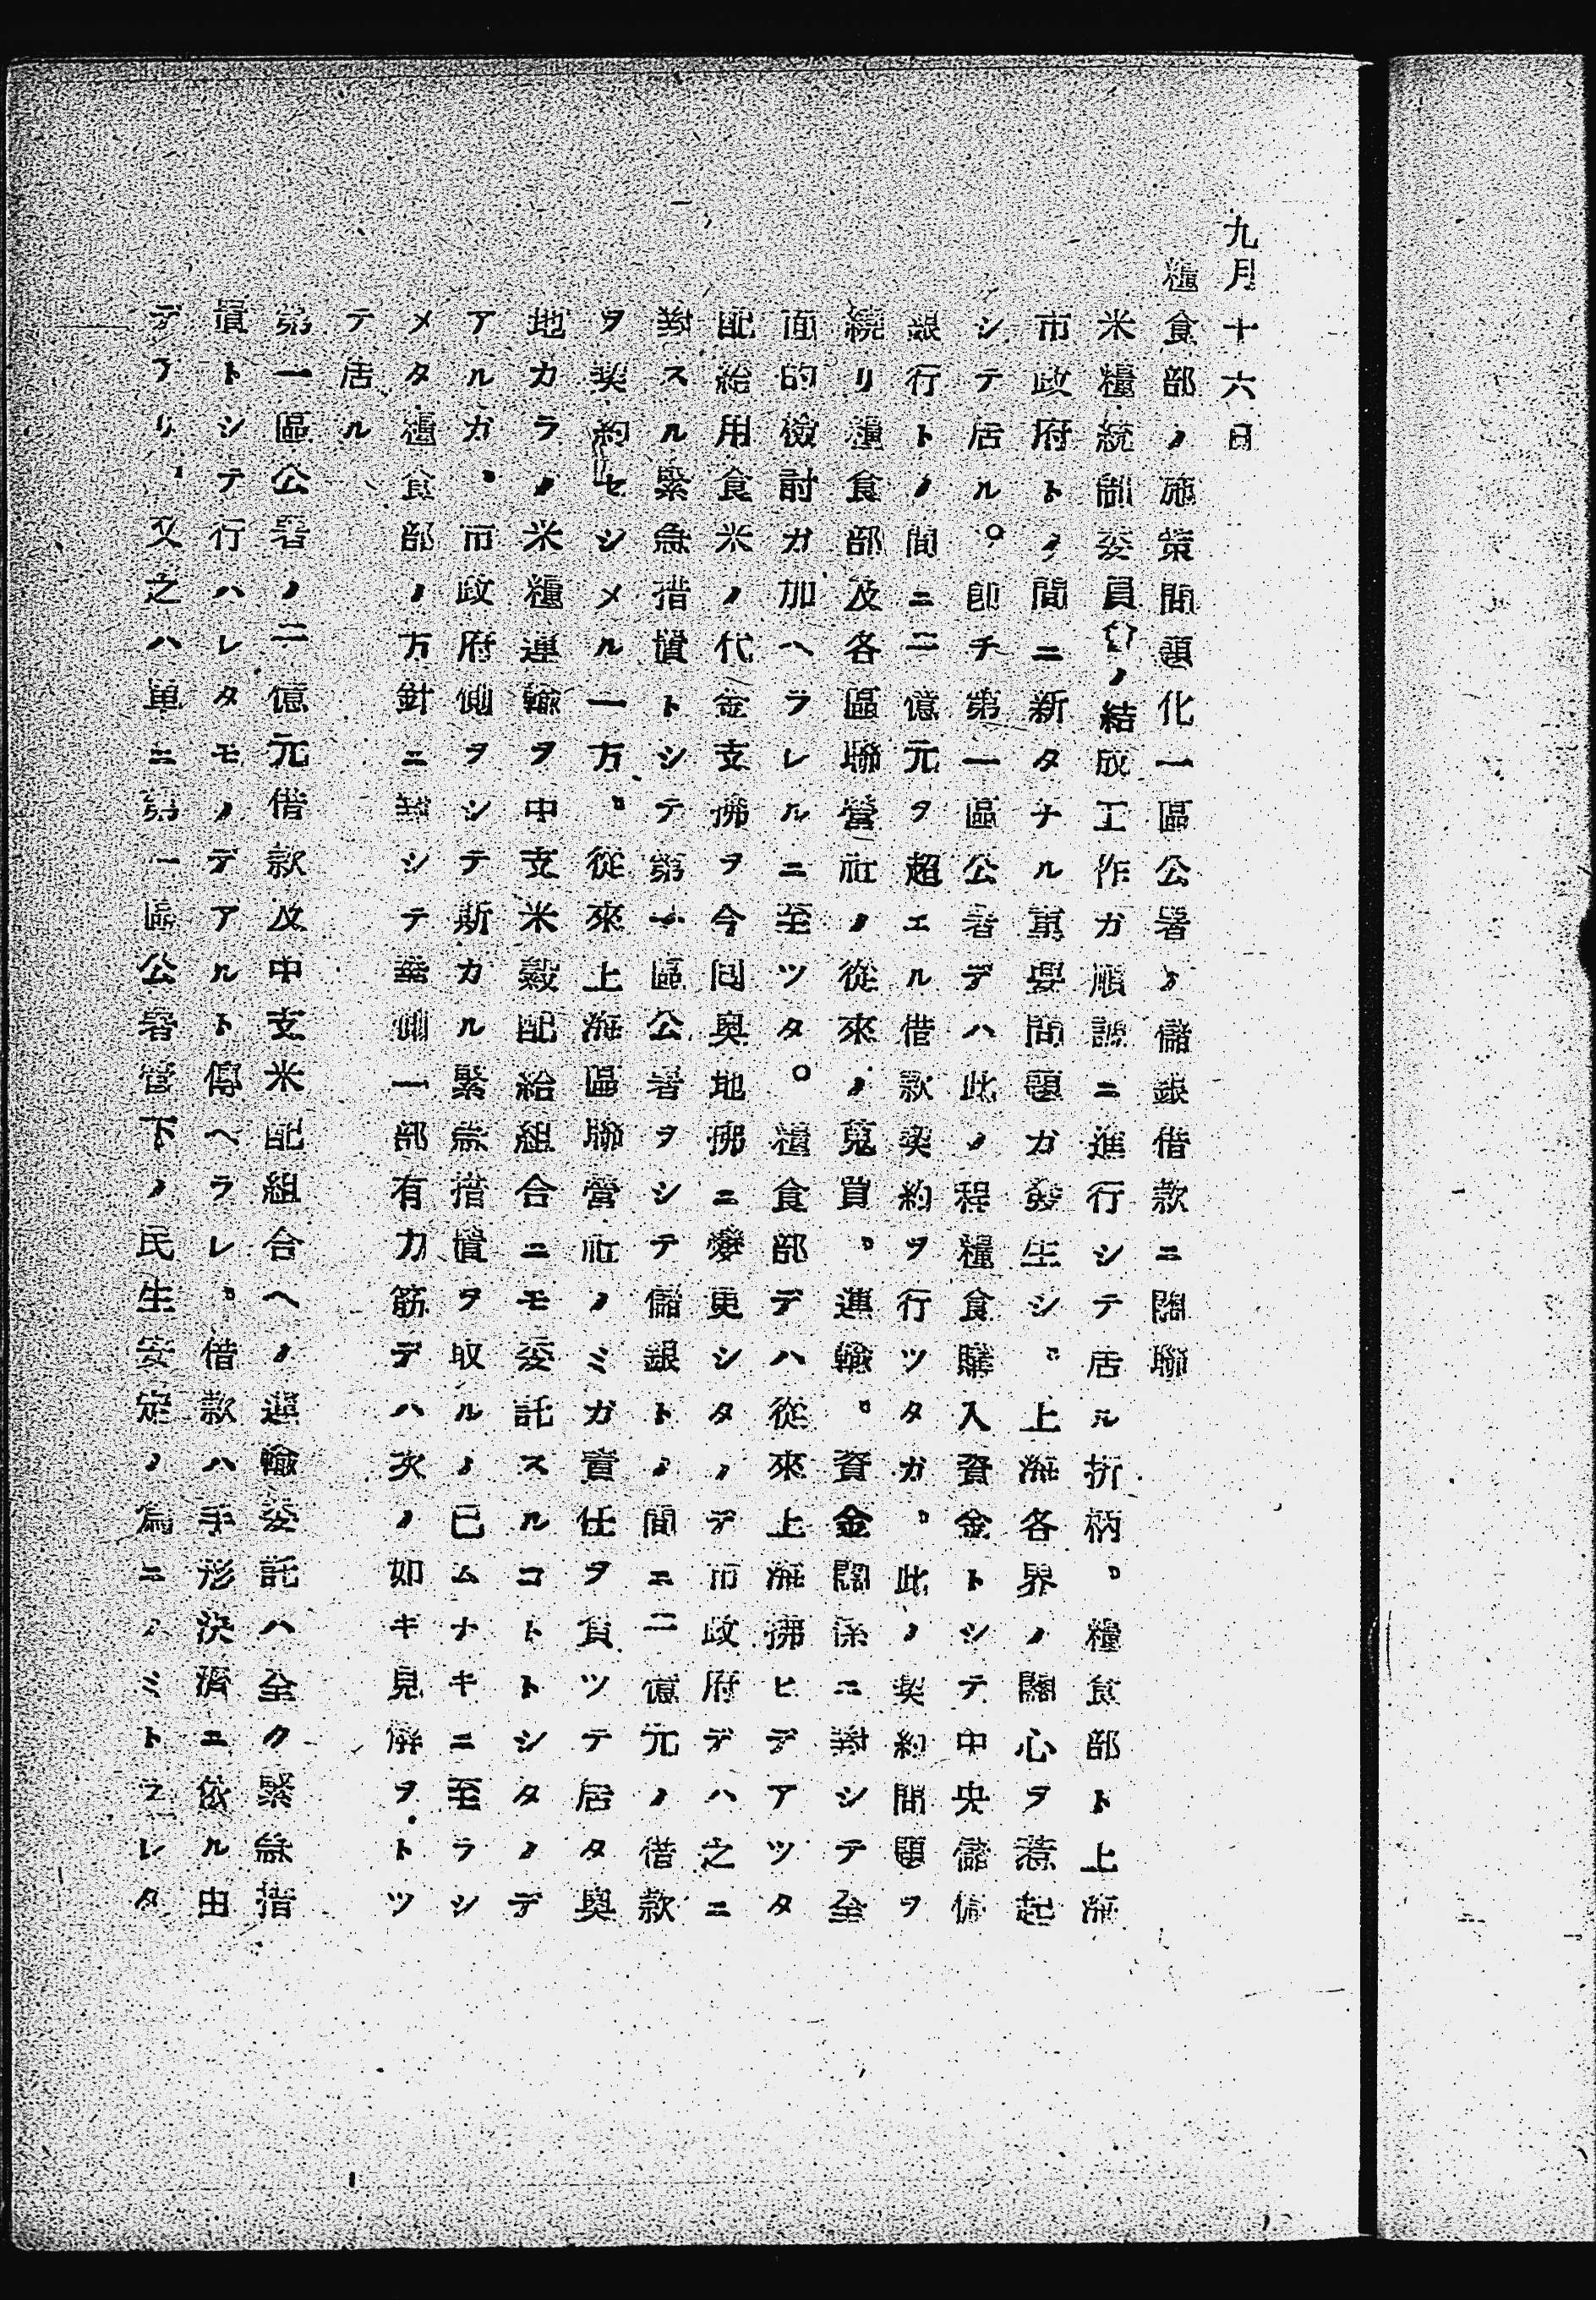 九月十六日
糧食部ノ施策問題化一區公署ノ儲銀借款ニ關聯
米糧統制委員會ノ結成工作ガ順調ニ進行シテ居ル折柄、糧食部ト上海
市政府トノ間ニ新タナル重要問題ガ發生シ、上海各界ノ關心ヲ惹起
シテ居ル。卽チ第一區公署デハ此ノ程糧食購入資金トシテ中央儲備
銀行トノ間ニ二億元ヲ超エル借款契約ヲ行ツタガ、此ノ契約問題ヲ
繞リ糧食部及各區聯營社ノ從來ノ蒐買、運輸、資金關係ニ對シテ全
面的檢討ガ加ヘラレルニ至ツタ。糧食部デハ從來上海拂ヒデアツタ
配給用食米ノ代金支拂ヲ今囘奧地拂ニ變更シタノデ市政府デハ之ニ
對スル緊急措置トシテ第一區公署ヲシテ儲銀トノ間ニ二億元ノ借款
ヲ契約セシメル一方、從來上海區聯營社ノミガ責任ヲ負ツテ居タ奧
地カラノ米糧運輸ヲ中支米穀配給組合ニモ委託スルコトトシタノデ
アルガ、市政府側ヲシテ斯カル緊急措置ヲ取ルノ已ムナキニ至ラシ
メタ糧食部ノ方針ニ對シテ華側一部有力筋デハ次ノ如キ見解ヲトツ
テ居ル
第一區公署ノ二億元借款及中支米配組合ヘノ運輸委託ハ全ク緊急措
置トシテ行ハレタモノデアルト傳ヘラレ、借款ハ手形決濟ニ依ル由
デアリ、又之ハ單ニ第一區公署管下ノ民生安定ノ爲ニノミトラレタ